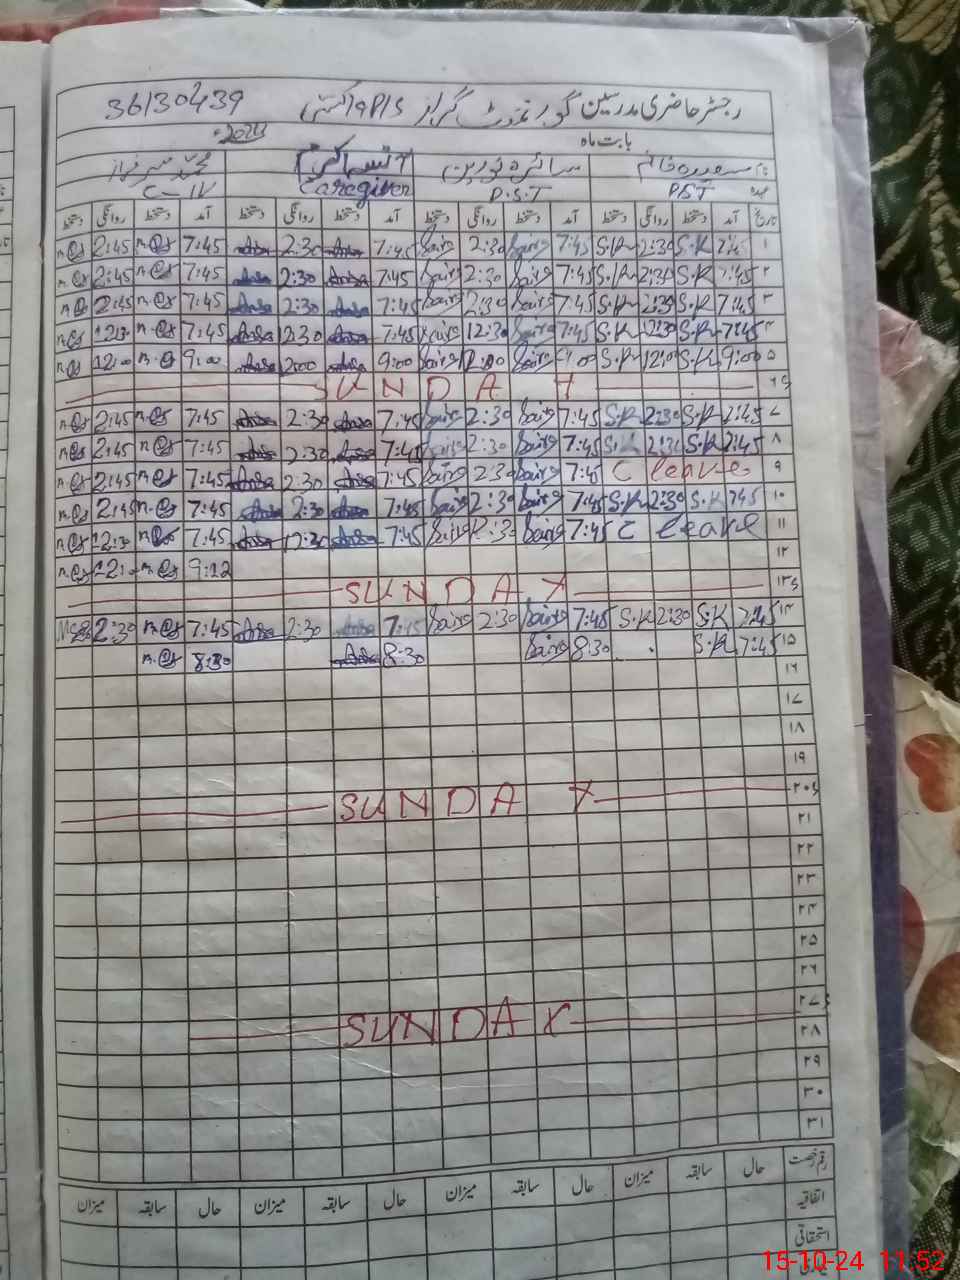 رجسٹر حاضری مدرسین گورنمنٹ گرلز P/S 36130439
بابت ماہ 2024ء
نام سعیدہ خانم سائرہ نورین محمد سرفراز
عہدہ PST P.S.T Caregiver C-IV
تاریخ آمد دستخط روانگی دستخط آمد دستخط روانگی دستخط آمد دستخط روانگی دستخط آمد دستخط روانگی دستخط
۱ 7:45 S.K 2:30 S.K 7:45 Saira 2:30 Saira 7:45 2:30 7:45 2:45
۲ 7:45 S.K 2:30 S.K 7:45 Saira 2:30 Saira 7:45 2:30 7:45 2:45
۳ 7:45 S.K 2:30 S.K 7:45 Saira 2:30 Saira 7:45 2:30 7:45 2:45
۴ 7:45 S.K 12:30 S.K 7:45 Saira 12:30 Saira 7:45 12:30 7:45 12:30
۵ 9:00 S.K 12:00 S.K 9:00 Saira 12:00 Saira 9:00 12:00 9:00 12:00
۶ SUNDAY
۷ 7:45 S.K 2:30 S.K 7:45 Saira 2:30 Saira 7:45 2:30 7:45 2:45
۸ 7:45 S.K 2:30 S.K 7:45 Saira 2:30 Saira 7:45 2:30 7:45 2:45
۹ C leave 7:45 Saira 2:30 Saira 7:45 2:30 7:45 2:45
۱۰ 7:45 S.K 2:30 S.K 7:45 Saira 2:30 Saira 7:45 2:30 7:45 2:45
۱۱ C leave 7:45 Saira 12:30 Saira 7:45 12:30 7:45 12:30
۱۲ 9:12
۱۳ SUNDAY
۱۴ 7:45 S.K 2:30 S.K 7:45 Saira 2:30 Saira 7:45 2:30 7:45 2:30
۱۵ 7:45 S.K 8:30 Saira 8:30 8:30
۱۶
۱۷
۱۸
۱۹
۲۰ SUNDAY
۲۱
۲۲
۲۳
۲۴
۲۵
۲۶
۲۷ SUNDAY
۲۸
۲۹
۳۰
۳۱
رقم رخصت حال سابقہ میزان حال سابقہ میزان حال سابقہ میزان حال سابقہ میزان
اتفاقیہ
استحقاقی
15-10-24 11:52